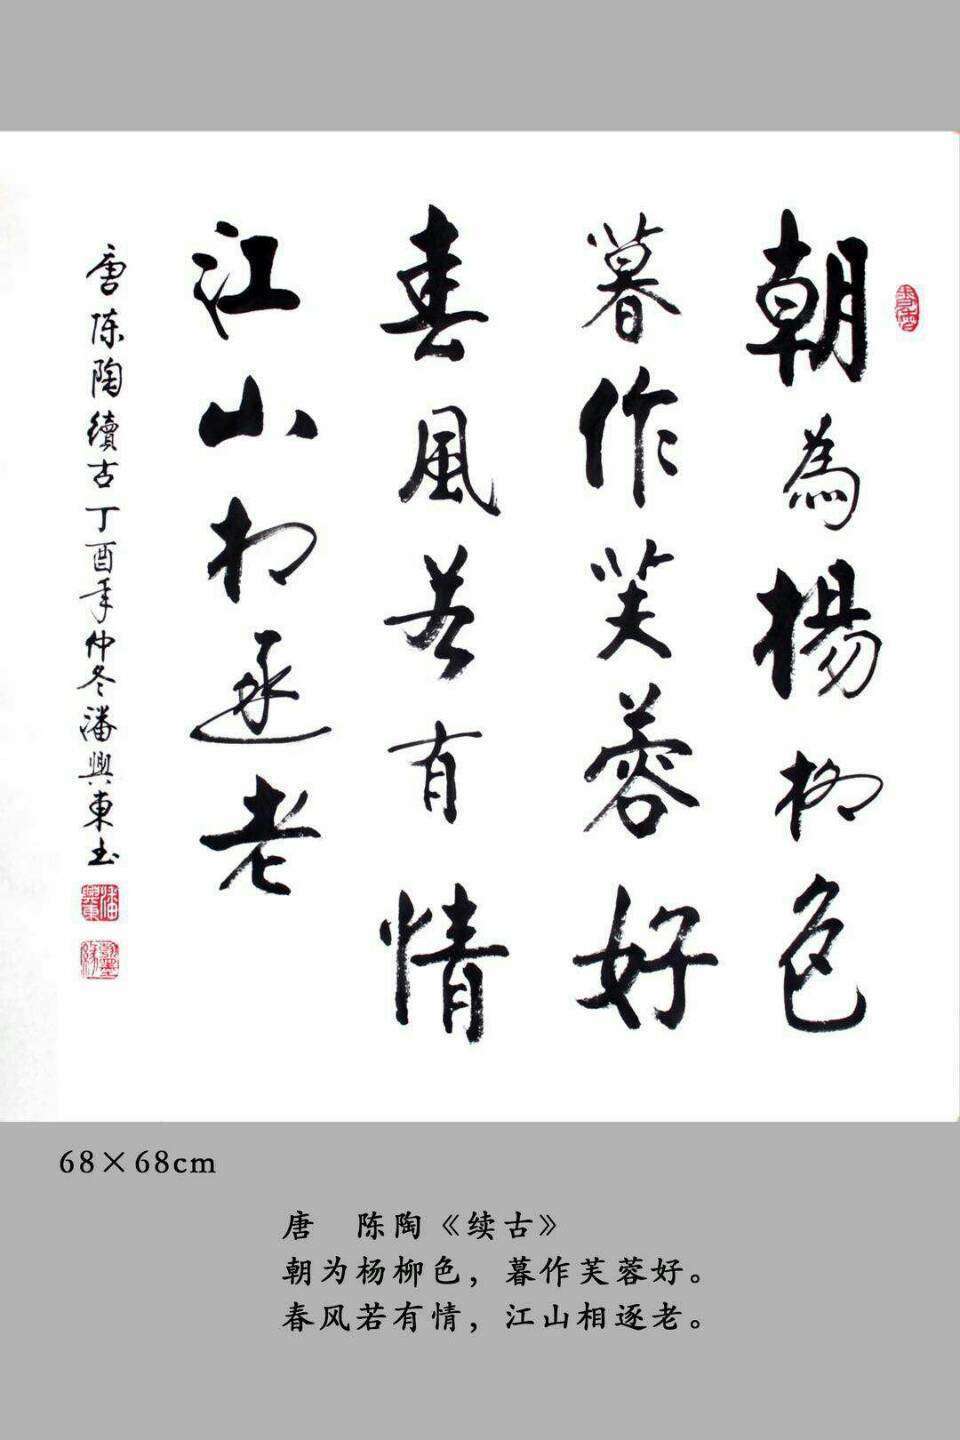 朝為楊柳色
暮作芙蓉好
春風若有情
江山相逐老
唐陈陶續古丁酉年仲冬潘興東书
潘興東
68×68cm
唐 陈陶《续古》
朝为杨柳色，暮作芙蓉好。
春风若有情，江山相逐老。